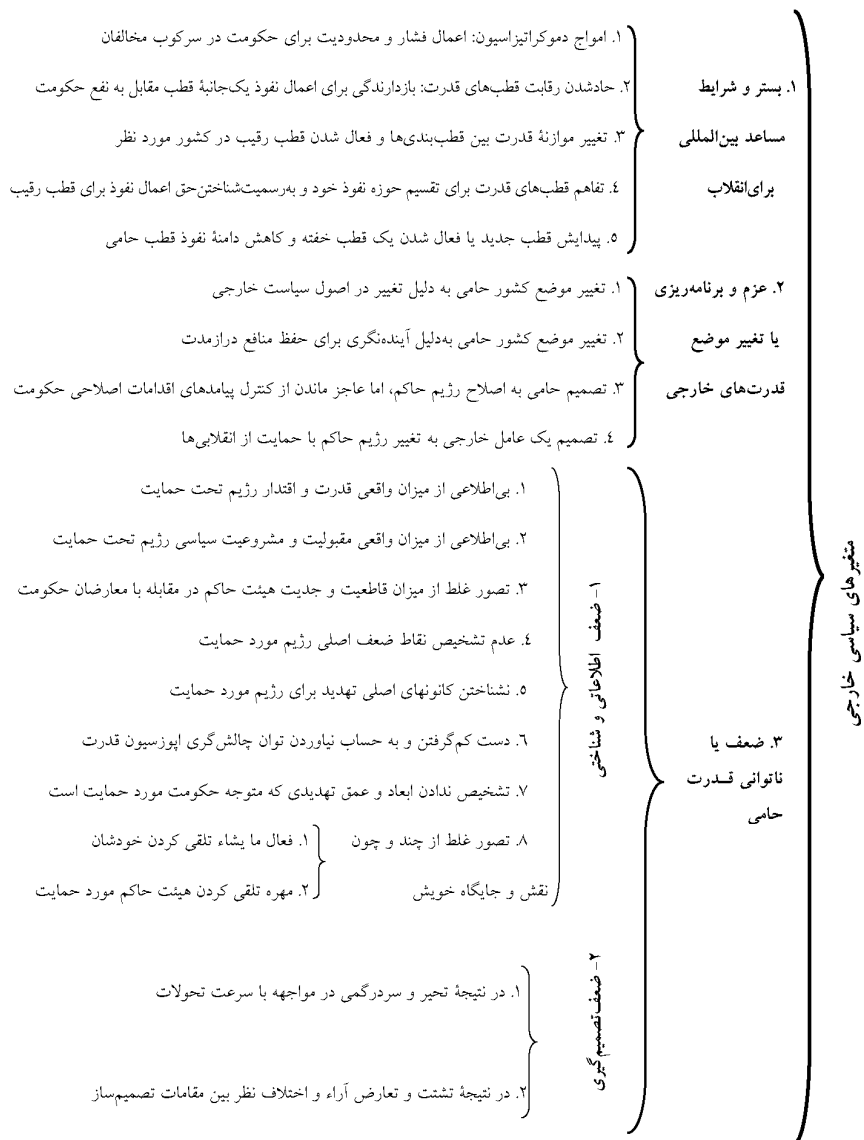 متغیرهای سیاسی خارجی
۱. بستر و شرایط
مساعد بین‌المللی
برای‌انقلاب
۱. امواج دموکراتیزاسیون: اعمال فشار و محدودیت برای حکومت در سرکوب مخالفان
۲. حادشدن رقابت قطب‌های قدرت: بازدارندگی برای اعمال نفوذ یک‌جانبهٔ قطب مقابل به نفع حکومت
۳. تغییر موازنهٔ قدرت بین قطب‌بندی‌ها و فعال شدن قطب رقیب در کشور مورد نظر
۴. تفاهم قطب‌های قدرت برای تقسیم حوزه نفوذ خود و به‌رسمیت‌شناختن‌حق اعمال نفوذ برای قطب رقیب
۵. پیدایش قطب جدید یا فعال شدن یک قطب خفته و کاهش دامنهٔ نفوذ قطب حامی
۲. عزم و برنامه‌ریزی
یا تغییر موضع
قدرت‌های خارجی
۱. تغییر موضع کشور حامی به دلیل تغییر در اصول سیاست خارجی
۲. تغییر موضع کشور حامی به‌دلیل آینده‌نگری برای حفظ منافع درازمدت
۳. تصمیم حامی به اصلاح رژیم حاکم، اما عاجز ماندن از کنترل پیامدهای اقدامات اصلاحی حکومت
۴. تصمیم یک عامل خارجی به تغییر رژیم حاکم با حمایت از انقلابی‌ها
۳. ضعف یا
ناتوانی قــدرت
حامی
۱- ضعف اطلاعاتی و شناختی
۱. بی‌اطلاعی از میزان واقعی قدرت و اقتدار رژیم تحت حمایت
۲. بی‌اطلاعی از میزان واقعی مقبولیت و مشروعیت سیاسی رژیم تحت حمایت
۳. تصور غلط از میزان قاطعیت و جدیت هیئت حاکم در مقابله با معارضان حکومت
۴. عدم تشخیص نقاط ضعف اصلی رژیم مورد حمایت
۵. نشناختن کانونهای اصلی تهدید برای رژیم مورد حمایت
۶. دست کم‌گرفتن و به حساب نیاوردن توان چالش‌گری اپوزسیون قدرت
۷. تشخیص ندادن ابعاد و عمق تهدیدی که متوجه حکومت مورد حمایت است
۸. تصور غلط از چند و چون
نقش و جایگاه خویش
۱. فعال ما یشاء تلقی کردن خودشان
۲. مهره تلقی کردن هیئت حاکم مورد حمایت
۲- ضعف‌تصمیم‌گیری
۱. در نتیجهٔ تحیر و سردرگمی در مواجهه با سرعت تحولات
۲. در نتیجهٔ تشتت و تعارض آراء و اختلاف نظر بین مقامات تصمیم‌ساز